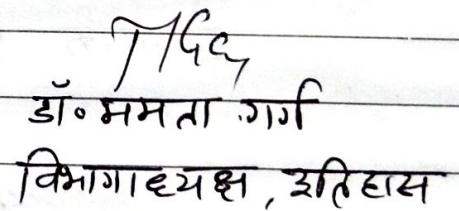 डॉ० ममता गर्ग
विभागाध्यक्ष, इतिहास